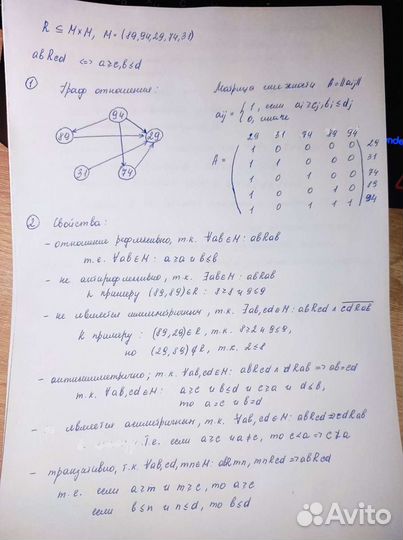 R ⊆ M×M, M = (89,94,29,74,31)
abRcd ⇔ a≥c, b≤d
① Граф отношения:
94
89
29
31
74
Матрица смежности A=||aij||
aij = { 1, если ai≥cj, bi≤dj
0, иначе
29 31 74 89 94
A =
1 0 0 0 0 29
1 1 0 0 0 31
1 0 1 0 0 74
1 0 0 1 0 89
1 0 1 1 1 94
② Свойства:
- отношение рефлексивно, т.к. ∀ab∈M: abRab
т.е. ∀ab∈M: a≥a и b≤b
- не антирефлексивно, т.к. ∃ab∈M: abRab
к примеру (89,89)∈R: 8≥8 и 9≤9
- не является симметричным, т.к. ∃ab,cd∈M: abRcd ∧ cdRab
к примеру: (89,29)∈R, т.к. 8≥2 и 9≤9,
но (29,89)∉R, т.к. 2≤8
- антисимметрично; т.к. ∀ab,cd∈M: abRcd ∧ cdRab ⇒ ab=cd
т.к. ∀ab,cd∈M: a≥c и b≤d и c≥a и d≤b,
то a=c и b=d
является асимметричным, т.к. ∀ab,cd∈M: abRcd ⇒ cdRab
т.е. если a≥c и a≠c, то c<a ⇒ c≱a
- транзитивно, т.к. ∀ab,cd,mn∈M: abRmn, mnRcd ⇒ abRcd
т.е. если a≥m и m≥c, то a≥c
если b≤n и n≤d, то b≤d
Avito